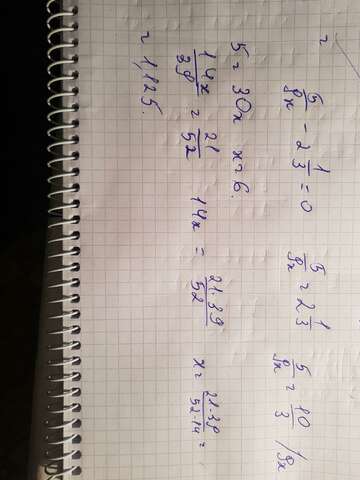 =
5/9x - 2 1/3 = 0   5/9x = 2 1/3   5/9x = 10/3 /9x
5 = 30x   x = 6.
14x/39 = 21/52   14x = 21·39/52   x = 21·39/52·14 =
= 1,125.